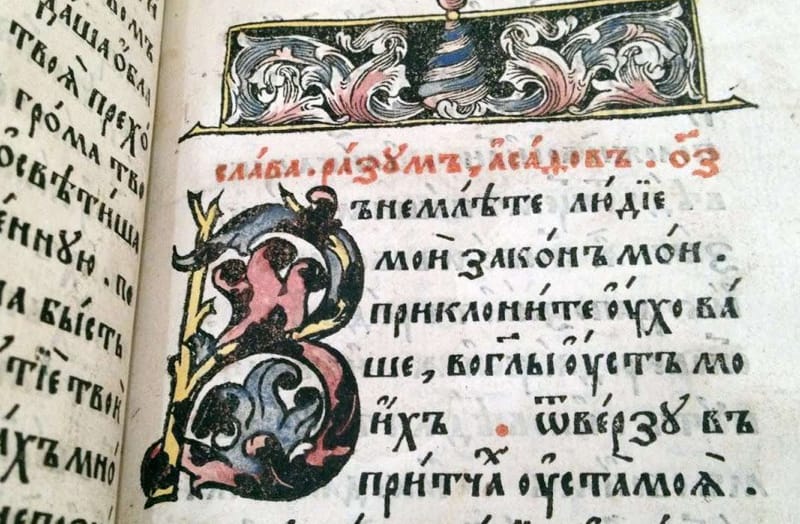 даша ѻбла
твоѧ̀ прехо́
гро́ма тво
ѻсвѣти́ша
е́нную . по
бы́сть
мно́
сла́ва . ра́зумъ , а҆са́фовъ . о҃з
Въне́млѣте лю́дїе
мои̑ зако́нъ мо́й .
приклони́те ѹ҆́хо ва́
ше , воглы̀ ѹ҆стъ мо
и́хъ . ѿве́рзу въ
при́тчахъ ѹ҆ста̀ моѧ̑ .